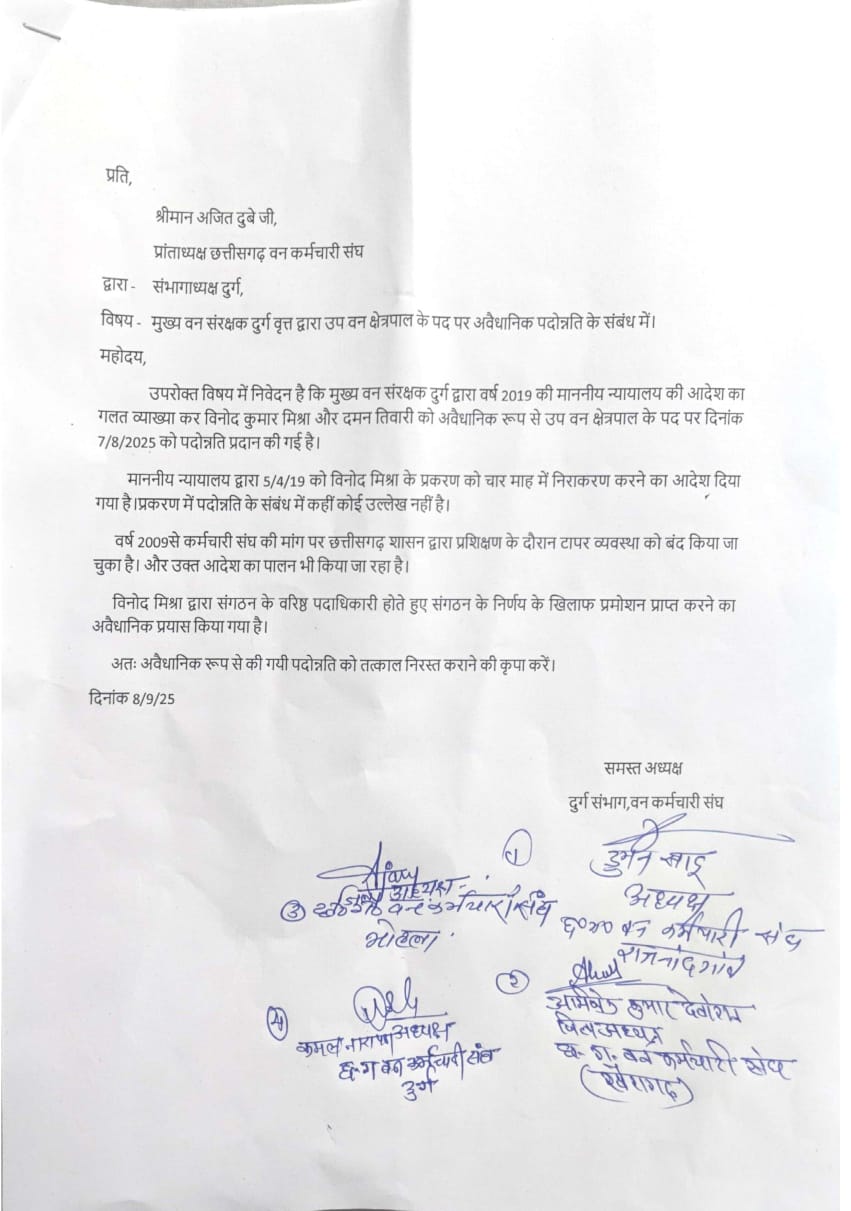 प्रति,
श्रीमान अजित दुबे जी,
प्रांताध्यक्ष छत्तीसगढ़ वन कर्मचारी संघ
द्वारा - संभागाध्यक्ष दुर्ग,
विषय - मुख्य वन संरक्षक दुर्ग वृत्त द्वारा उप वन क्षेत्रपाल के पद पर अवैधानिक पदोन्नति के संबंध में।
महोदय,
उपरोक्त विषय में निवेदन है कि मुख्य वन संरक्षक दुर्ग द्वारा वर्ष 2019 की माननीय न्यायालय की आदेश का
गलत व्याख्या कर विनोद कुमार मिश्रा और दमन तिवारी को अवैधानिक रूप से उप वन क्षेत्रपाल के पद पर दिनांक
7/8/2025 को पदोन्नति प्रदान की गई है।
माननीय न्यायालय द्वारा 5/4/19 को विनोद मिश्रा के प्रकरण को चार माह में निराकरण करने का आदेश दिया
गया है।प्रकरण में पदोन्नति के संबंध में कहीं कोई उल्लेख नहीं है।
वर्ष 2009से कर्मचारी संघ की मांग पर छत्तीसगढ़ शासन द्वारा प्रशिक्षण के दौरान टापर व्यवस्था को बंद किया जा
चुका है। और उक्त आदेश का पालन भी किया जा रहा है।
विनोद मिश्रा द्वारा संगठन के वरिष्ठ पदाधिकारी होते हुए संगठन के निर्णय के खिलाफ प्रमोशन प्राप्त करने का
अवैधानिक प्रयास किया गया है।
अतः अवैधानिक रूप से की गयी पदोन्नति को तत्काल निरस्त कराने की कृपा करें।
दिनांक 8/9/25
समस्त अध्यक्ष
दुर्ग संभाग,वन कर्मचारी संघ
१
अध्यक्ष
छ०ग० वन कर्मचारी संघ
राजनांदगांव
३ वन कर्मचारी संघ
मोहला
२
कुमार
जिलाध्यक्ष
छ.ग. वन कर्मचारी संघ
(खैरागढ़)
४
कमल नारायण अध्यक्ष
छ.ग वन कर्मचारी संघ
दुर्ग